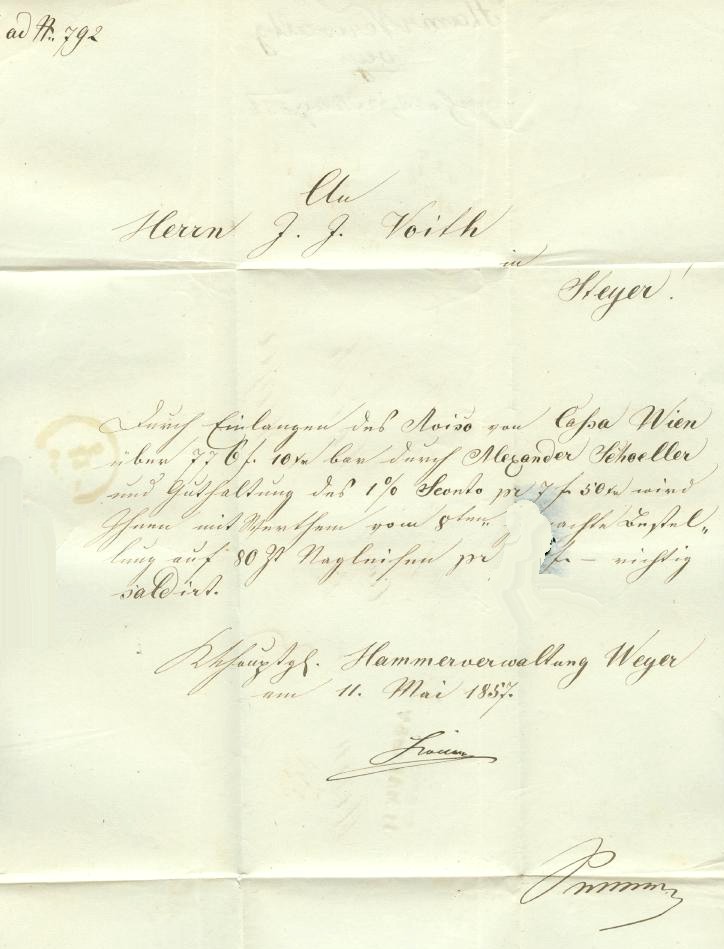 ad Nr. 792
An
Herrn J. J. Voith
in
Steyer!
Durch Einlangen des Aviso von Cassa Wien
über 776 f. 10 xr bar durch Alexander Schoeller
und Guthaltung des 1% Sconto pr 7 f 50 xr wird
Ihnen mit Werthem vom 8ten achte Bestel„
lung auf 80 Zt Nageleisen pr f. – richtig
saldirt.
Hammerverwaltung Weyer
am 11. Mai 1857.